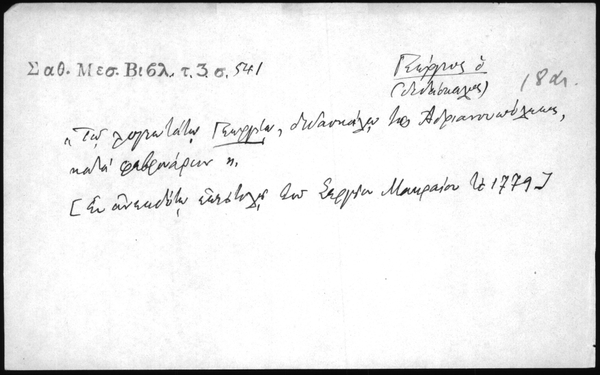 Σαθ. Μεσ. Βιβλ. τ. 3. σ. 541
Γεώργιος ὁ
(διδάσκαλος)
18 αι.
"Τῷ λογιωτάτῳ Γεωργίῳ, διδασκάλῳ τῆς Ἀδριανουπόλεως,
κατὰ φεβρουάριον".
[Ἐν ἀνεκδότῳ ἐπιστολῇ τοῦ Σεργίου Μακραίου τῷ 1779]